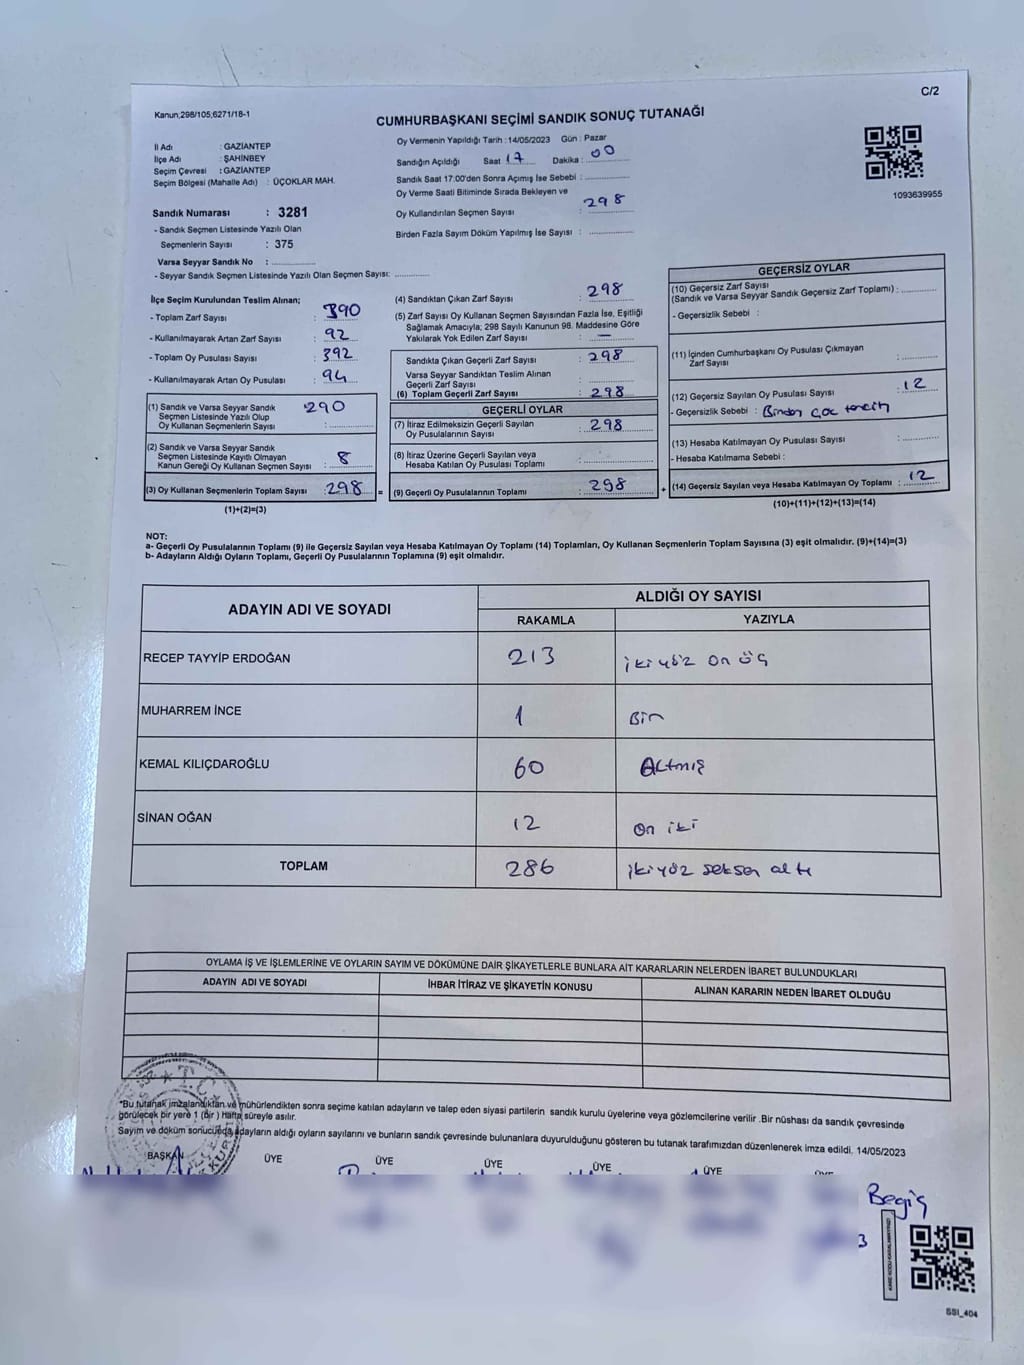 C/2
Kanun,298/105,6271/18-1
CUMHURBAŞKANI SEÇİMİ SANDIK SONUÇ TUTANAĞI
İl Adı : GAZİANTEP
İlçe Adı : ŞAHİNBEY
Seçim Çevresi : GAZİANTEP
Seçim Bölgesi (Mahalle Adı) : ÜÇOKLAR MAH.
Oy Vermenin Yapıldığı Tarih : 14/05/2023 Gün : Pazar
Sandığın Açıldığı Saat 17 Dakika : 00
Sandık Saat 17:00'den Sonra Açımış İse Sebebi :
Oy Verme Saati Bitiminde Sırada Bekleyen ve
Oy Kullandırılan Seçmen Sayısı : 298
Birden Fazla Sayım Döküm Yapılmış İse Sayısı :
1093639955
Sandık Numarası : 3281
- Sandık Seçmen Listesinde Yazılı Olan
Seçmenlerin Sayısı : 375
Varsa Seyyar Sandık No :
- Seyyar Sandık Seçmen Listesinde Yazılı Olan Seçmen Sayısı:
İlçe Seçim Kurulundan Teslim Alınan;
- Toplam Zarf Sayısı : 390
- Kullanılmayarak Artan Zarf Sayısı : 92
- Toplam Oy Pusulası Sayısı : 392
- Kullanılmayarak Artan Oy Pusulası : 94
(1) Sandık ve Varsa Seyyar Sandık 290
Seçmen Listesinde Yazılı Olup
Oy Kullanan Seçmenlerin Sayısı :
(2) Sandık ve Varsa Seyyar Sandık
Seçmen Listesinde Kayıtlı Olmayan
Kanun Gereği Oy Kullanan Seçmen Sayısı : 8
(3) Oy Kullanan Seçmenlerin Toplam Sayısı : 298 =
(1)+(2)=(3)
(4) Sandıktan Çıkan Zarf Sayısı : 298
(5) Zarf Sayısı Oy Kullanan Seçmen Sayısından Fazla İse, Eşitliği
Sağlamak Amacıyla; 298 Sayılı Kanunun 98. Maddesine Göre
Yakılarak Yok Edilen Zarf Sayısı : —
Sandıkta Çıkan Geçerli Zarf Sayısı : 298
Varsa Seyyar Sandıktan Teslim Alınan
Geçerli Zarf Sayısı :
(6) Toplam Geçerli Zarf Sayısı : 298
GEÇERLİ OYLAR
(7) İtiraz Edilmeksizin Geçerli Sayılan
Oy Pusulalarının Sayısı : 298
(8) İtiraz Üzerine Geçerli Sayılan veya
Hesaba Katılan Oy Pusulası Toplamı :
(9) Geçerli Oy Pusulalarının Toplamı : 298 +
GEÇERSİZ OYLAR
(10) Geçersiz Zarf Sayısı
(Sandık ve Varsa Seyyar Sandık Geçersiz Zarf Toplamı) :
- Geçersizlik Sebebi :
(11) İçinden Cumhurbaşkanı Oy Pusulası Çıkmayan
Zarf Sayısı :
(12) Geçersiz Sayılan Oy Pusulası Sayısı : 12
- Geçersizlik Sebebi : Birden çok tercih
(13) Hesaba Katılmayan Oy Pusulası Sayısı :
- Hesaba Katılmama Sebebi :
(14) Geçersiz Sayılan veya Hesaba Katılmayan Oy Toplamı : 12
(10)+(11)+(12)+(13)=(14)
NOT:
a- Geçerli Oy Pusulalarının Toplamı (9) ile Geçersiz Sayılan veya Hesaba Katılmayan Oy Toplamı (14) Toplamları, Oy Kullanan Seçmenlerin Toplam Sayısına (3) eşit olmalıdır. (9)+(14)=(3)
b- Adayların Aldığı Oyların Toplamı, Geçerli Oy Pusulalarının Toplamına (9) eşit olmalıdır.
ADAYIN ADI VE SOYADI ALDIĞI OY SAYISI
RAKAMLA YAZIYLA
RECEP TAYYİP ERDOĞAN 213 iki yüz on üç
MUHARREM İNCE 1 Bir
KEMAL KILIÇDAROĞLU 60 Altmış
SİNAN OĞAN 12 on iki
TOPLAM 286 iki yüz seksen altı
OYLAMA İŞ VE İŞLEMLERİNE VE OYLARIN SAYIM VE DÖKÜMÜNE DAİR ŞİKAYETLERLE BUNLARA AİT KARARLARIN NELERDEN İBARET BULUNDUKLARI
ADAYIN ADI VE SOYADI İHBAR İTİRAZ VE ŞİKAYETİN KONUSU ALINAN KARARIN NEDEN İBARET OLDUĞU
T.C.
*Bu tutanak imzalandıktan ve mühürlendikten sonra seçime katılan adayların ve talep eden siyasi partilerin sandık kurulu üyelerine veya gözlemcilerine verilir .Bir nüshası da sandık çevresinde
görülecek bir yere 1 (bir ) Hafta süreyle asılır.
Sayım ve döküm sonucunda adayların aldığı oyların sayılarını ve bunların sandık çevresinde bulunanlara duyurulduğunu gösteren bu tutanak tarafımızdan düzenlenerek imza edildi. 14/05/2023
BAŞKAN ÜYE ÜYE ÜYE ÜYE ÜYE
SSI_404